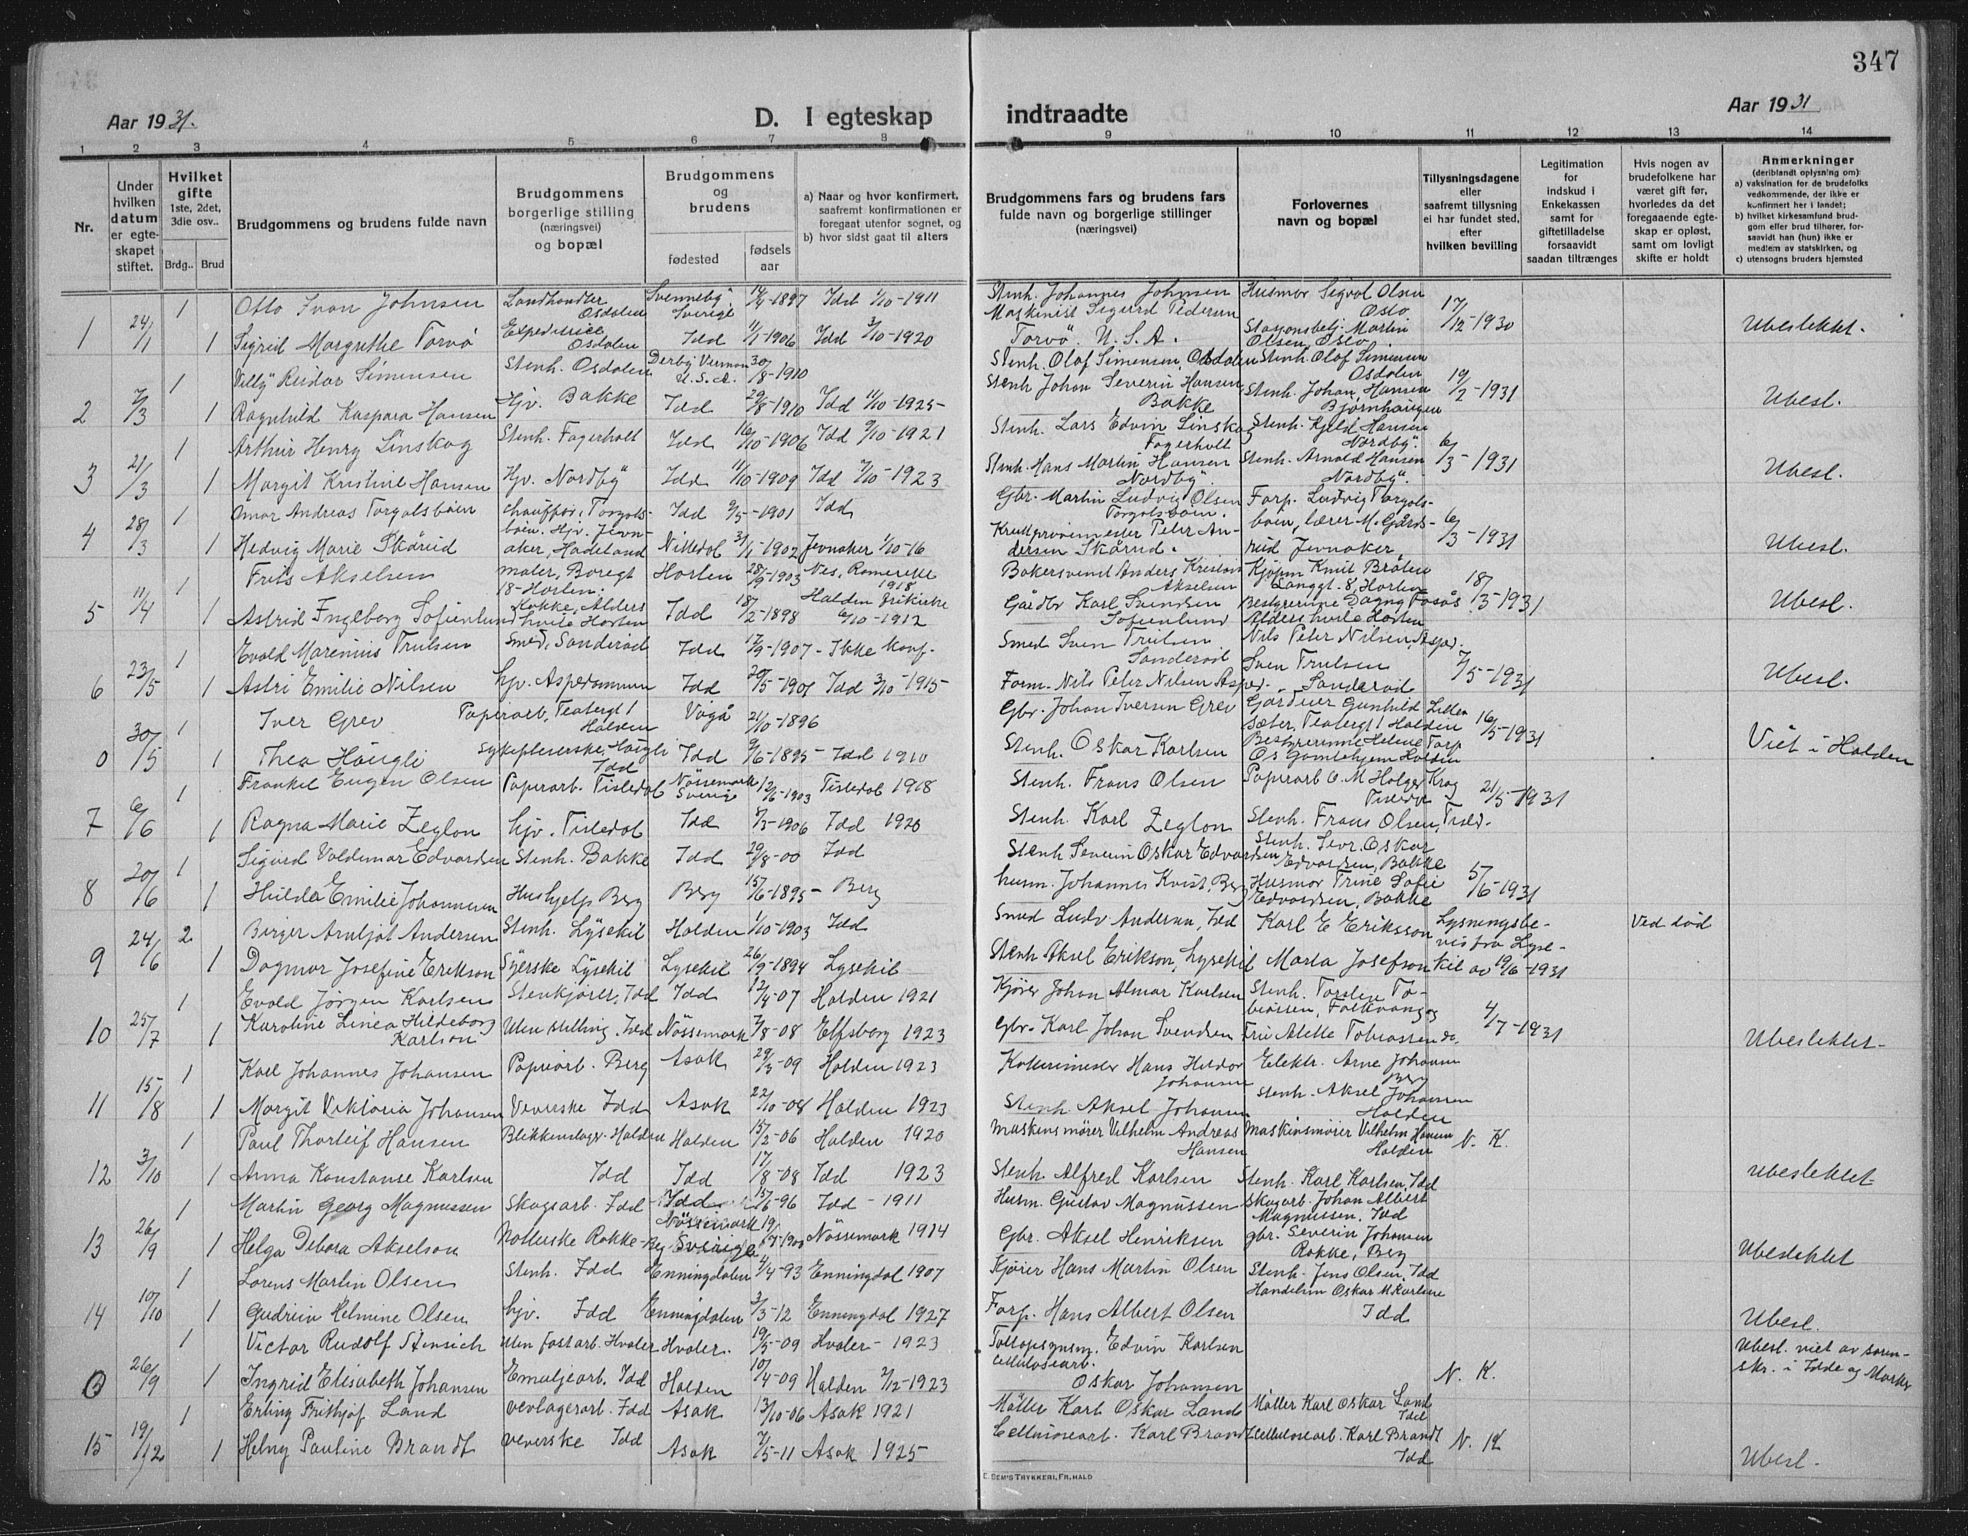 347
Aar 1931.
D. I egteskap
indtraadte
Aar 1931
1 2 3 4 5 6 7 8 9 10 11 12 13 14
Nr.
Under hvilken datum er egteskapet stiftet.
Hvilket gifte
1ste, 2det, 3die osv..
Brdg.. Brud
Brudgommens og brudens fulde navn
Brudgommens borgerlige stilling (næringsvei) og bopæl
Brudgommens og brudens
fødested
fødsels aar
a) Naar og hvor konfirmert, saafremt konfirmationen er foregaat utenfor sognet, og
b) hvor sidst gaat til alters
Brudgommens fars og brudens fars fulde navn og borgerlige stillinger (næringsvei)
Forlovernes navn og bopæl
Tillysningsdagene eller saafremt tillysning ei har fundet sted, efter hvilken bevilling
Legitimation for indskud i Enkekassen samt for giftetilladelse forsaavidt saadan tiltrænges
Hvis nogen av brudefolkene har været gift før, hvorledes da det foregaaende egteskap er opløst, samt om lovligt skifte er holdt
Anmerkninger
(deriblandt oplysning om)
a) vaksination for de brudefolks vedkommende, der ikke er konfirmert her i landet;
b) hvilket kirkesamfund brudgom eller brud tilhører, forsaavidt han (hun) ikke er medlem av statskirken, og
c) utensogns bruders hjemsted
1 24/1 1 Otto Ivan Johnsen Landhandler Osdalen Svenneby Sverige 14/4-1897 Idd 1/10-1911 Stenh. Johannes Johnsen Husmor Sigrol Olsen Oslo 17/12-1930
1 Sigrid Margrethe Torvø Expeditrice Osdalen Idd 11/1-1906 Idd 3/10-1920 Maskinist Sigurd Pedersen Torvö. U.S.A. Stasjonsbetj. Martin Olsen, Oslo. Ubeslektet.
2 7/3 1 Villy Reidar Simensen Stenh. Osdalen Derby Vermon U.S.A. 30/8-1910 Stenh. Olaf Simensen, Osdalen Stenh. Olaf Simensen Osdalen 19/2-1931
1 Ragnhild Kaspara Hansen Hjv. Bakke Idd 29/8-1910 Idd 11/10-1925 Stenh Johan Severin Hansen Bakke Stenh. Johan Hansen Bjørnhaugen Ubesl.
3 21/3 1 Arthur Henry Linskog Stenh. Fagerholt Idd 16/10-1906 Idd 9/10-1921 Stenh. Lars Edvin Linskog Fagerholt Stenh. Kjeld Hansen Nordby. 6/3-1931
1 Margit Kristine Hansen Hjv. Nordby Idd 11/10-1909 Idd 7/10-1923 Stenh. Hans Martin Hansen Nordby. Stenh. Arnold Hansen Nordby. Ubesl.
4 28/3 1 Omar Andreas Torgalsbøen chauffør, Torgalsbøen. Idd 9/5-1901 Idd Gbr. Martin Ludvig Olsen Torgalsbøen. Forp. Ludvig Torgalsbøen, 6/3-1931
1 Hedvig Marie Skårud Hjv. Jevnaker, Hadeland Nittedal 31/1-1902 Jevnaker 1/10-16 Kruttprøvemester Peter Andersen Skårud. lærer M. Gårdsrud Jevnaker Ubesl.
5 11/4 1 Frits Akselsen maler, Boregt 18-Horten. Horten 28/9-1903 Nes, Romerike 1918 Bakersvend Anders Kristian Akselsen Kjøpm Knut Bråten Langgt. 8, Horten 18/3-1931
1 Astrid Ingeborg Sofienlund Kokke, Aldershvile Horten Idd 18/2-1898 Halden frikirke 6/10-1912 Gårdbr Karl Svendsen Sofienlund Bestyrerinne Dagny Fosås Aldershvile Horten Ubesl.
6 23/5 1 Evald Marenius Trulsen Smed, Sanderød Idd 17/9-1907 - Ikke konf. Smed Sven Trulsen Sanderød Nils Peter Nilsen, Asped. 7/5-1931
1 Astri Emilie Nilsen hjv. Aspedammen Idd 20/5-1901 Idd 3/10-1915 Form. Nils Peter Nilsen Asped. Sven Trulsen Sanderød Ubesl.
0 30/5 1 Iver Grev Papirarb, Teatergt 1 Halden Vågå 21/10-1896 Gbr. Johan Iversen Grev Gardner Gunhild Lillesæter, Teatergt 1 Halden 16/5-1931
1 Thea Haugli Sykepleierske, Haugli Idd Idd 9/6-1895 - Idd 1910 Stenh. Oskar Karlsen Bestyrerinne Helene Torp Os Gamlehjem Halden Viet i Halden
7 6/6 1 Frankel Eugen Olsen Papirarb. Tistedal Nössemark Sverige 12/6-1903 Tistedal 1918 Stenh. Frans Olsen Papirarb O. M. Holger Krog Tistedal 21/5-1931
1 Ragna Marie Zeglon hjv. Tistedal Idd 7/3-1906 Idd 1920 Stenh. Karl Zeglon Stenh. Frans Olsen, Tisted.
8 20/6 1 Sigurd Valdemar Edvardsen Stenh. Bakke Idd 29/8-00 Idd Stenh Severin Oskar Edvardsen Stenh. Sevr. Oskar Edvardsen, Bakke 5/6-1931
1 Hilda Emilie Johannesen Hushjelp Berg Berg 15/6-1895 - Berg husm. Johannes Kvist, Berg Husmor Trine Sofie Edvardsen, Bakke
9 24/6 2 Birger Arnljot Andersen Stenh. Lysekil Halden 1/10-1903 Idd Smed Ludv Andersen, Idd Karl E Eriksson Lysningsbevis fra Lysekil av 19/6-1931 Ved død
1 Dagmar Josefine Erikson Syerske Lysekil Lysekil 26/9-1894 Lysekil Stenh Aksel Erikson, Lysekil Marta Josefson
10 25/7 1 Evald Jørgen Karlsen Stenkjører, Idd Idd 12/4-07 Halden 1921 Kjører Johan Almar Karlsen Stenh. Torsten Tobiassen, Folkvang og 4/7-1931
1 Karoline Linea Hildeborg Karlson Uten stilling, Idd Nössemark 7/8-08 Elfsborg 1923 Gbr. Karl Johan Svendsen Fru Alette Tobiassen do. Ubeslektet-
11 15/8 1 Karl Johannes Johansen Papirarb. Berg Asak 29/3-09 Halden 1923 Kullerimester Hans Heldor Johansen Elektr. Arne Johansen Berg
1 Margit Viktoria Johansen Veverske Idd Asak 22/10-08 Halden 1923 Stenh. Aksel Johansen Stenh. Aksel Johansen Halden
12 3/10 1 Paul Thorleif Hansen Blikkenslager. Halden Halden 15/2-06 Halden 1920 Maskinsmører Vilhelm Andreas Hansen Maskinsmører Vilhelm Hansen Halden N. K.
1 Anna Konstanse Karlsen Idd Idd 17/8-08 Idd 1923 Stenh. Alfred Karlsen Stenh. Karl Karlsen, Idd Ubeslektet
13 26/9 1 Martin Georg Magnussen Skogsarb. Idd Idd 15/6-96 Idd - 1911 Husm. Gustav Magnussen skogarb. Johan Albert Magnussen, Idd
1 Helga Debora Akselson Rokke-Berg Nössemark Sverige Nössemark 1914 Gbr. Aksel Henriksen gbr. Severin Johansen Rokke, Berg Ubeslektet
14 10/10 1 Lorens Martin Olsen Stenh. Idd Enningdalen 4/4-93 Enningdal 1907 Kjører Hans Martin Olsen Stenh. Jens Olsen, Idd
1 Gudrun Helmine Olsen hjv. Idd Enningdalen 3/3-12 Enningdal 1927 Forp. Hans Albert Olsen Handelsm Oskar M Karlsen Idd Ubesl.
0 26/9 1 Victor Rudolf Stensich Uten fast arb. Hvaler Hvaler. 19/5-09 Hvaler - 1923 Tolloppsynsm. Edvin Karlsen Ubesl. viet av sorenskr. i Idde og Marker
1 Ingrid Elisabeth Johansen Emaljearb. Idd Halden 10/4-09 Halden 2/12-1923 Cellulosearb. Oskar Johansen N. K.
15 19/12 1 Erling Frithjof Land vevlagerarb. Idd Asak 13/10-06 Asak 1921 Møller Karl Oskar Land Møller Karl Oskar Land Idd
1 Helny Pauline Brandt veverske Idd Asak 7/5-11 Asak 1925 Cellulosearb. Karl Brandt Cellulosearb. Karl Brandt Idd N. K. Ubesl.
E. SEM'S TRYKKERI, FR. HALD